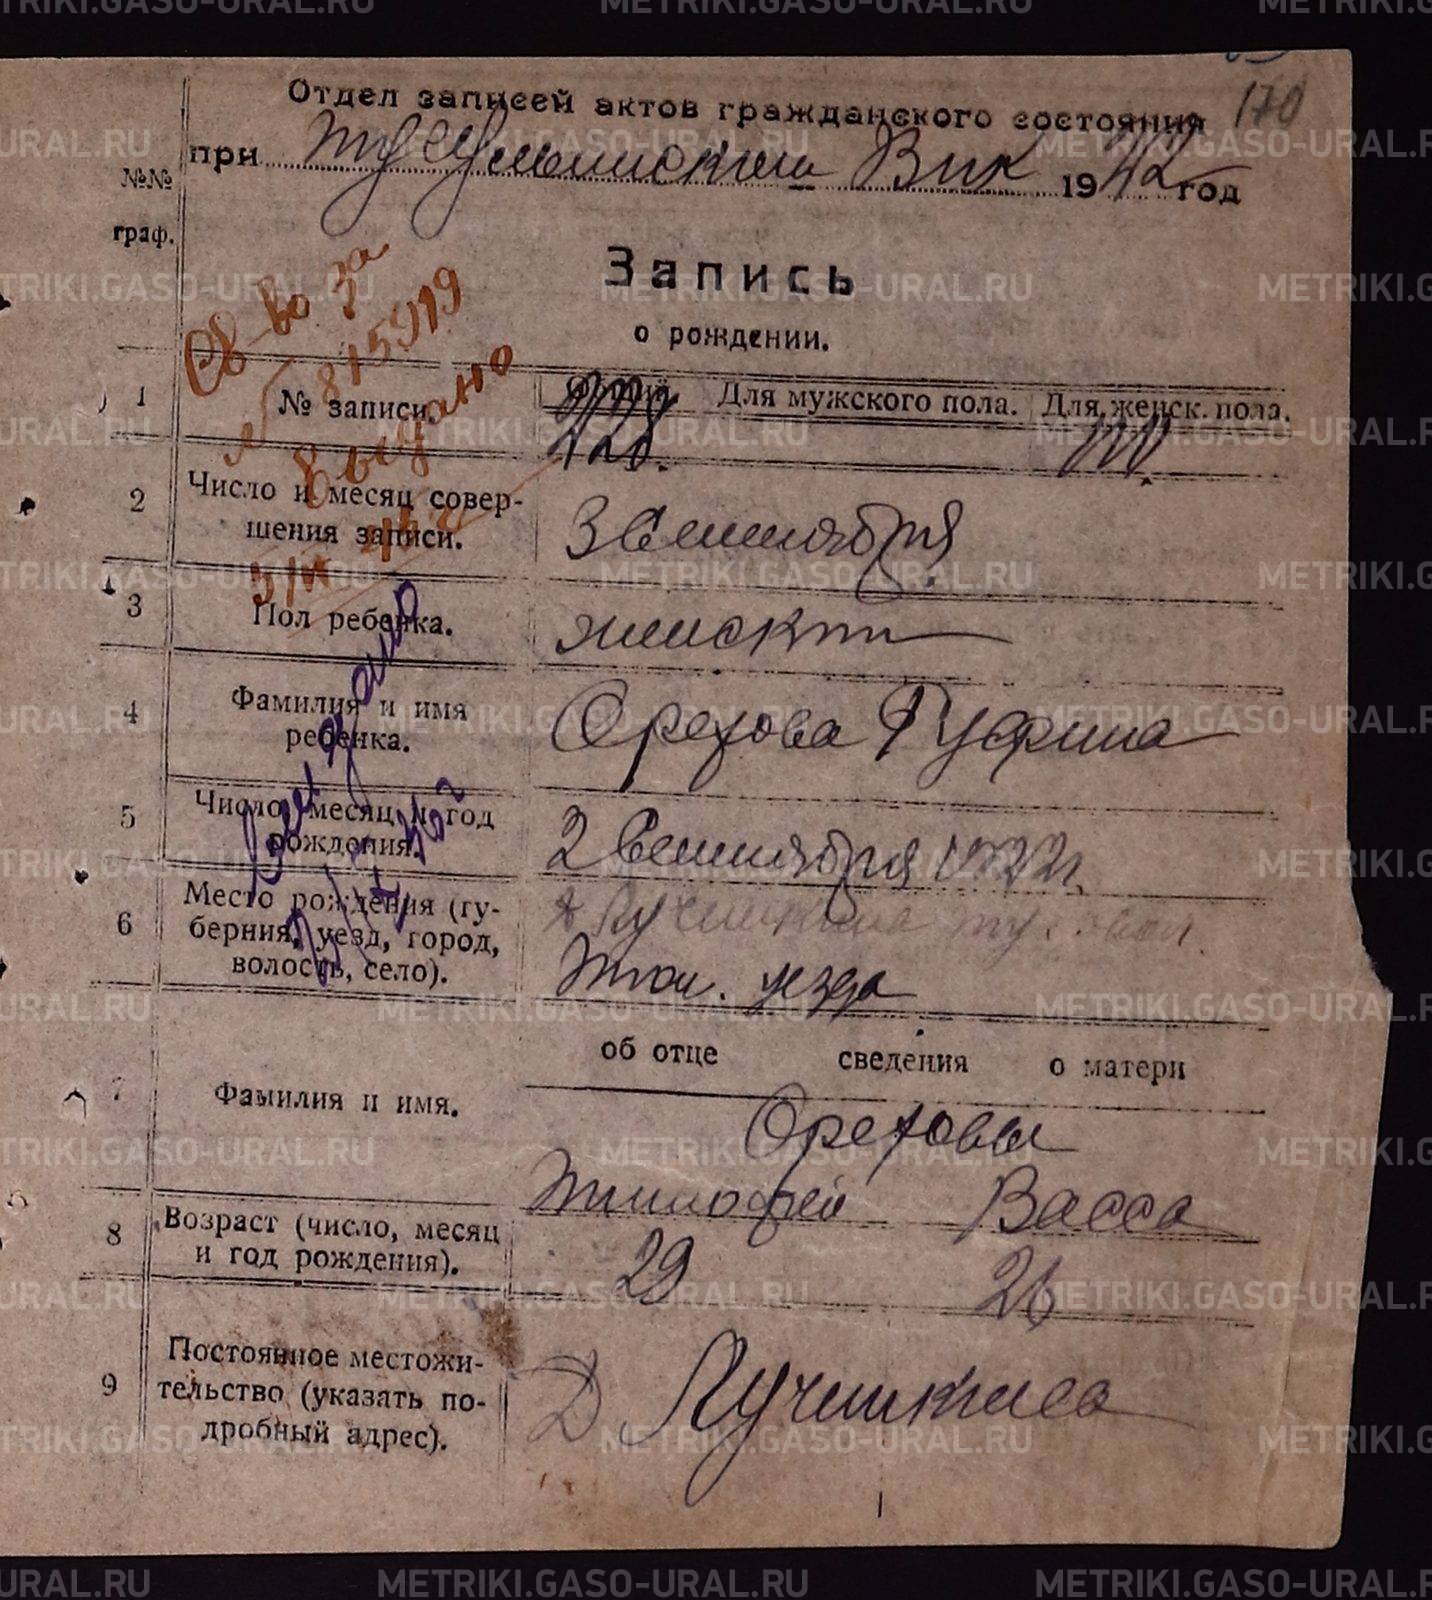 170
Отдел записей актов гражданского состояния
при Тугулымским Вик 1922 год
№№
граф.
Запись
о рождении.
Св-во за
815919
выдано
1 № записи. Для мужского пола. Для женск. пола.
428.
2 Число и месяц совер-
шения записи.
3 Сентября
3 Пол ребенка. женский
4 Фамилия и имя
ребенка.
Орехова Руфина
5 Число, месяц и год
рождения.
2 Сентября 1922 г.
6 Место рождения (гу-
берния, уезд, город,
волость, село).
уезда
об отце сведения о матери
7 Фамилия и имя.
Ореховы
Тимофей Васса
8 Возраст (число, месяц
и год рождения).
29 26
9 Постоянное местожи-
тельство (указать по-
дробный адрес).
Д Лучинкина
METRIKI.GASO-URAL.RU